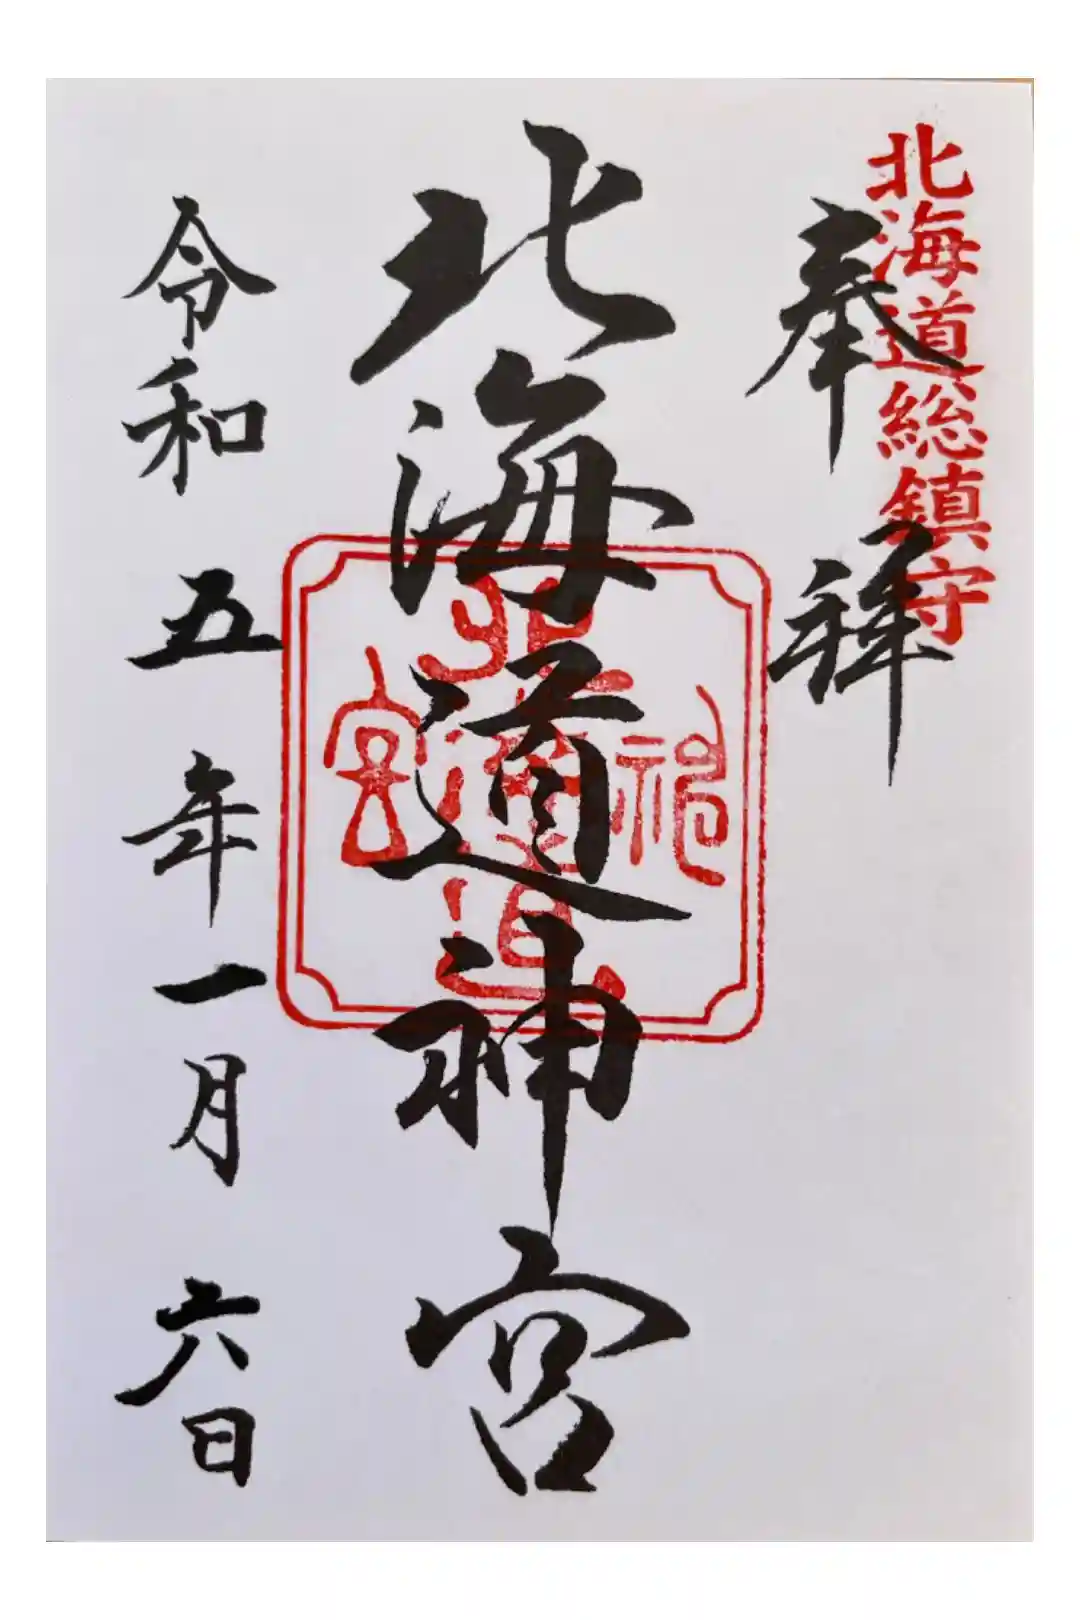 北海道総鎮守
奉拝
北海道神宮
令和五年一月六日